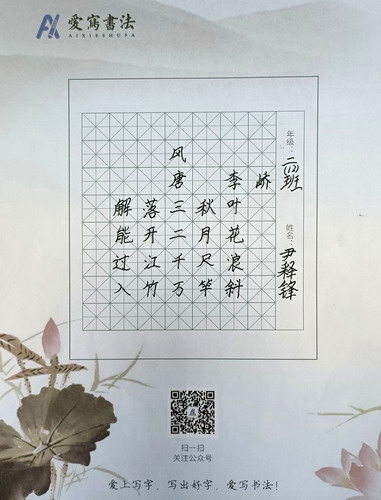 愛寫書法
AIXIESHUFA
风
唐 李 峤
解落三秋叶
能开二月花
过江千尺浪
入竹万竿斜
年级：二(四)班
姓名：尹释锋
扫一扫
关注公众号
爱上写字，写出好字，爱写书法！